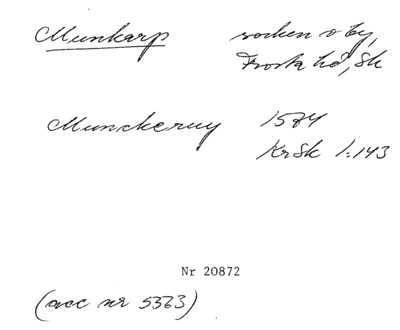 Munkarp socken o by,
Frosta hd, Sk
Munckeruy 1584
KrSk 1:143
Nr 20872
(acc nr 5363)